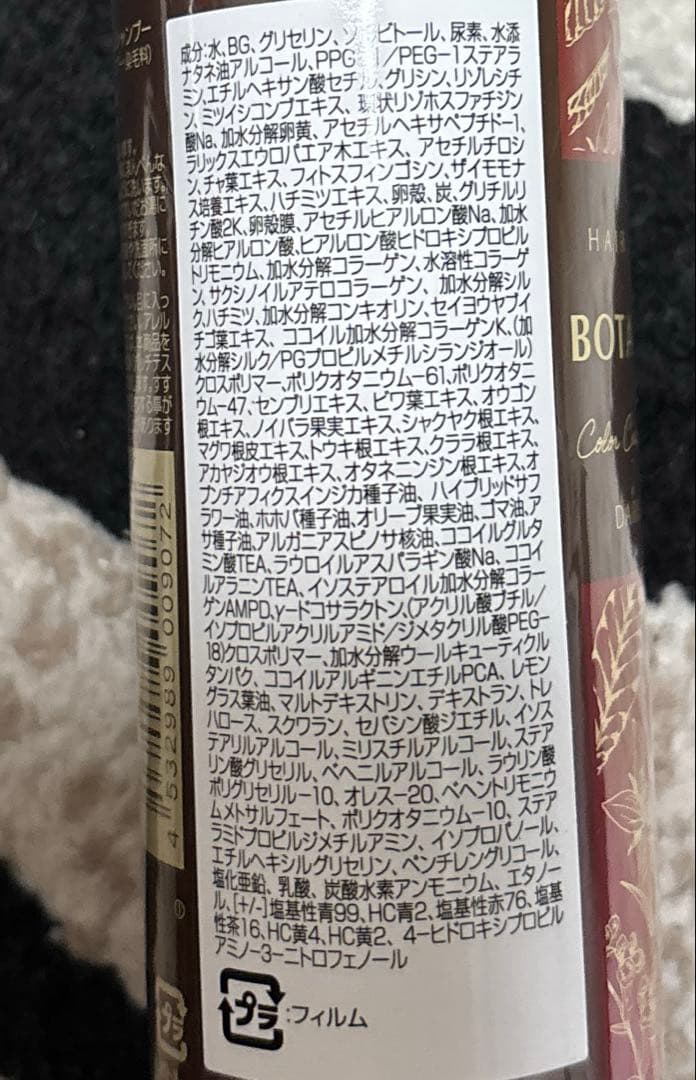 成分:水、BG、グリセリン、ソルビトール、尿素、水添
ナタネ油アルコール、PPG-1/PEG-1ステアラ
ミン、エチルヘキサン酸セチル、グリシン、リゾレシチ
ン、ミツイシコンブエキス、環状リゾホスファチジン
酸Na、加水分解卵黄、アセチルヘキサペプチド-1、
ラリックスエウロパエア木エキス、アセチルチロシ
ン、チャ葉エキス、フィトスフィンゴシン、ザイモモナ
ス培養エキス、ハチミツエキス、卵殻、炭、グリチルリ
チン酸2K、卵殻膜、アセチルヒアルロン酸Na、加水
分解ヒアルロン酸、ヒアルロン酸ヒドロキシプロピル
トリモニウム、加水分解コラーゲン、水溶性コラーゲ
ン、サクシノイルアテロコラーゲン、加水分解シル
ク、ハチミツ、加水分解コンキオリン、セイヨウヤブイ
チゴ葉エキス、ココイル加水分解コラーゲンK、(加
水分解シルク/PGプロピルメチルシランジオール)
クロスポリマー、ポリクオタニウム-61、ポリクオタニ
ウム-47、センブリエキス、ビワ葉エキス、オウゴン
根エキス、ノイバラ果実エキス、シャクヤク根エキス、
マグワ根皮エキス、トウキ根エキス、クララ根エキス、
アカヤジオウ根エキス、オタネニンジン根エキス、オ
プンチアフィクスインジカ種子油、ハイブリッドサフ
ラワー油、ホホバ種子油、オリーブ果実油、ゴマ油、ア
サ種子油、アルガニアスピノサ核油、ココイルグルタ
ミン酸TEA、ラウロイルアスパラギン酸Na、ココイ
ルアラニンTEA、イソステアロイル加水分解コラー
ゲンAMPD、γ-ドコサラクトン、(アクリル酸ブチル/
イソプロピルアクリルアミド/ジメタクリル酸PEG-
18)クロスポリマー、加水分解ウールキューティクル
タンパク、ココイルアルギニンエチルPCA、レモン
グラス葉油、マルトデキストリン、デキストラン、トレ
ハロース、スクワラン、セバシン酸ジエチル、イソス
テアリルアルコール、ミリスチルアルコール、ステア
リン酸グリセリル、ベヘニルアルコール、ラウリン酸
ポリグリセリル-10、オレス-20、ベヘントリモニウ
ムメトサルフェート、ポリクオタニウム-10、ステア
ラミドプロピルジメチルアミン、イソプロパノール、
エチルヘキシルグリセリン、ペンチレングリコール、
塩化亜鉛、乳酸、炭酸水素アンモニウム、エタノー
ル、[+/-]塩基性青99、HC青2、塩基性赤76、塩基
性茶16、HC黄4、HC黄2、4-ヒドロキシプロピル
アミノ-3-ニトロフェノール
プラ:フィルム
4 532989 009072
プラ
BOTA
Color